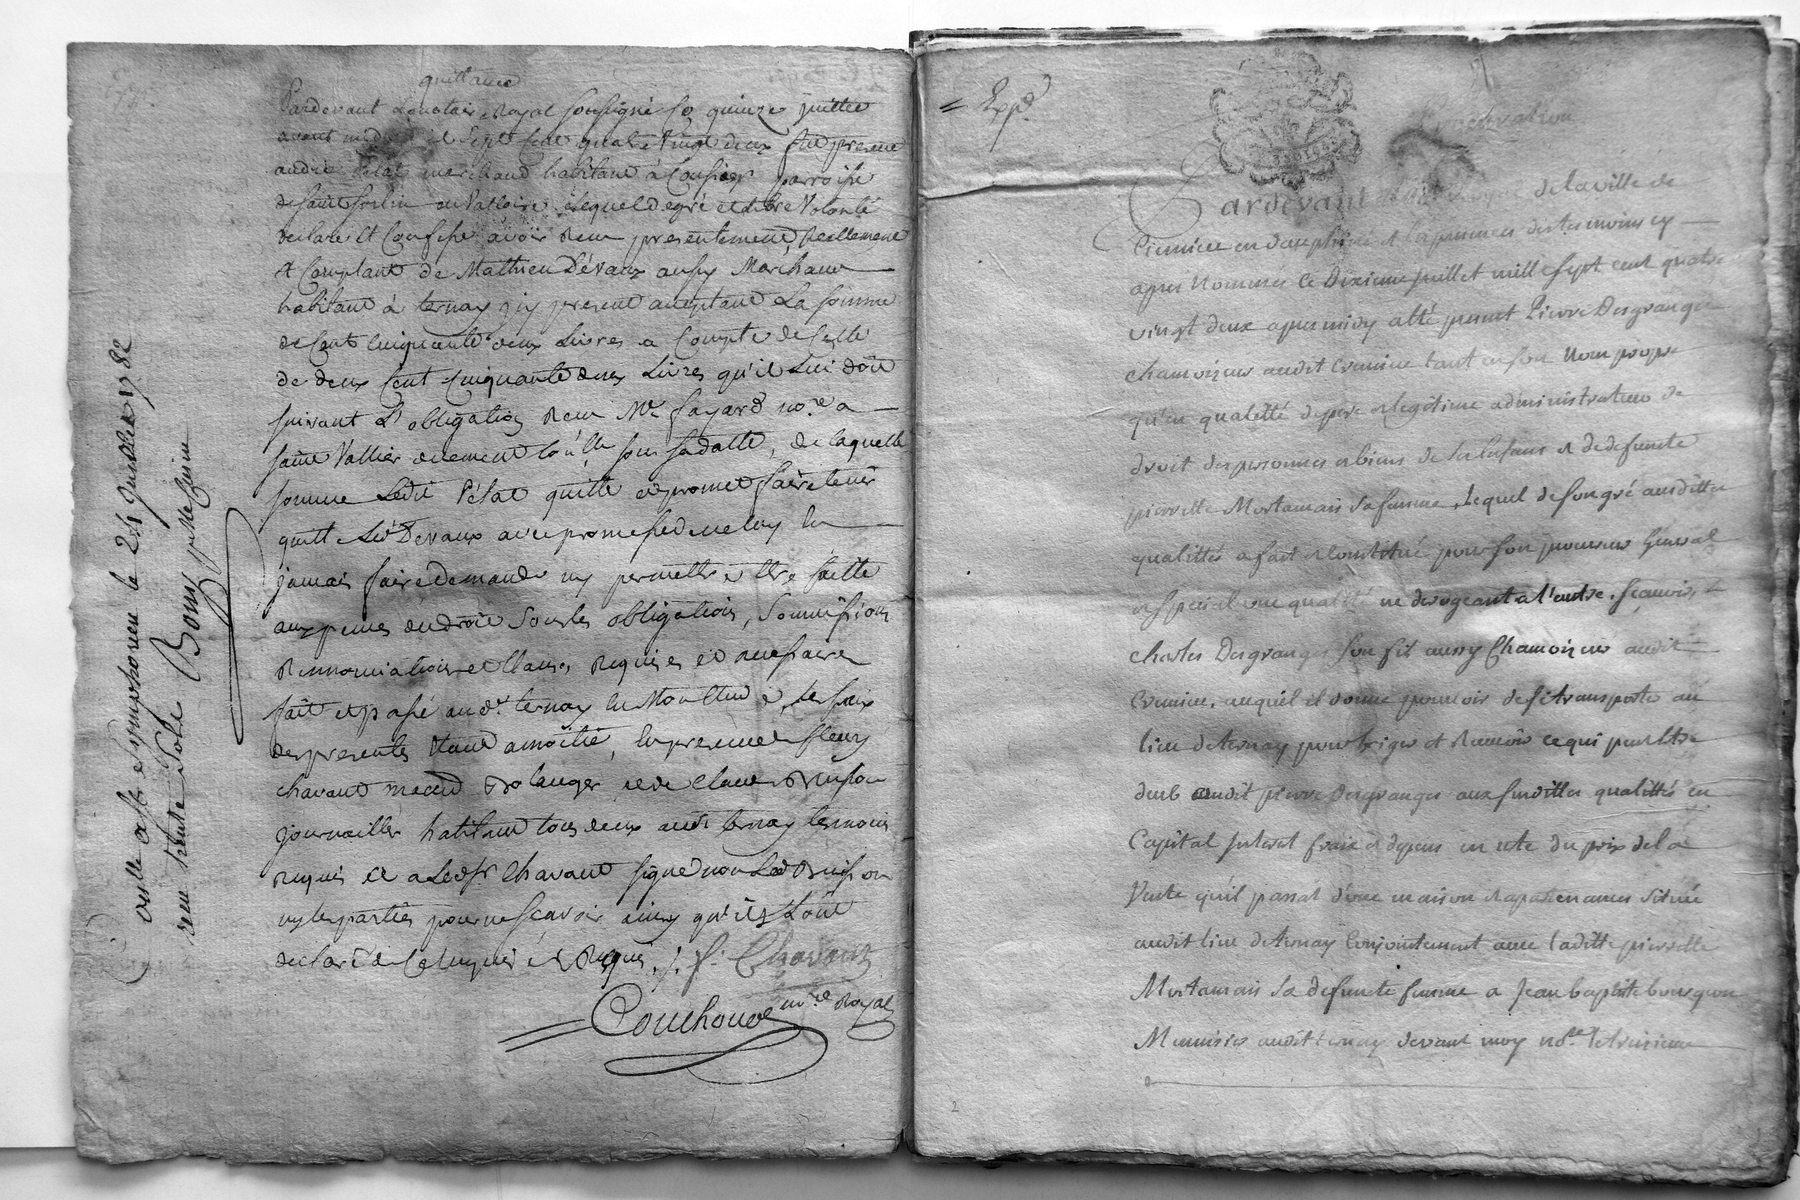 quittance
Pardevant le notaire Royal soussigné Ce quinze juillet
avant midi mil sept cent quatre vingt deux fut present
andré Pélat marchand habitant à Consieg parroisse
de saint sorlin en Valloire, lequel de gré et libre Volonté
declare et Confesse avoir Reçu presentement, Reellement
et Comptant de Mathieu Dévaux aussy Marchand
habitant à ternay icy present acceptant La somme
de Cent Cinquante deux Livres a Compte de Celle
de deux Cent Cinquante deux Livres qu'il Lui doit
suivant L'obligation Reçu Me fayard nore a
saint Vallier duement Contrôllé sous sa datte, de laquelle
somme Ledit Pélat quitte et promet faire tenir
quitte Led Devaux avec promesse de ne luy en
jamais faire demande ny permettre être faitte
aux peines de droit Sous les obligations, Soumissions
Rennonciations et Clauses Requises et necessaires
fait et passé aud. ternay en Mon Etude, les frais
des presentes étant a moitié, en presence de fleury
chavant maitre Bolanger et de Claude Buisson
journaillier habitant tous deux audit ternay temoins
Requis et a Ledit sr Chavant signé non Led Buisson
ny les parties pour ne sçavoir ainsy qu'ils L'ont
declaré de Ce enquis et Requis ./. f. Chavant
Couchoud nore Royal
Conllé a St Symphorien le 24 Juillet 1782
reçu trente Sols Bons pr Mr Cuzin
= Expé
Procuration
Pardevant le nore Royal de la ville de
Cremieu en dauphiné et les presences des temoins cy
apres Nommés Ce Dixieme juillet mille sept cent quatre
vingt deux apres midy a été present Pierre Desgranges
chamoizeur audit Cremieu tant en son Nom propre
qu'en qualitté de pere et legitime administrateur de
droit des personnes et biens de ses enfans et de defuncte
pierrette Mortamais sa femme, Lequel de son gré ausdittes
qualittés a fait et Constitué pour son procureur General
et special une qualité ne derogeant a l'autre, sçavoir
charles Desgranges son fils aussy Chamoizeur audit
Cremieu, auquel il donne pouvoir de se transporter au
lieu de ternay pour Exiger et Recevoir ce qui peut Etre
deub audit pierre Desgranges aux susdittes qualittés en
Capital Interet frais et depens en reste du prix de la
Vente qu'il passat d'une maison et apartenances située
audit lieu de ternay Conjointement avec laditte pierrette
Mortamais sa defuncte femme a Jean baptiste bourguon
Menuisier audit ternay devant moy nore le troisieme
2